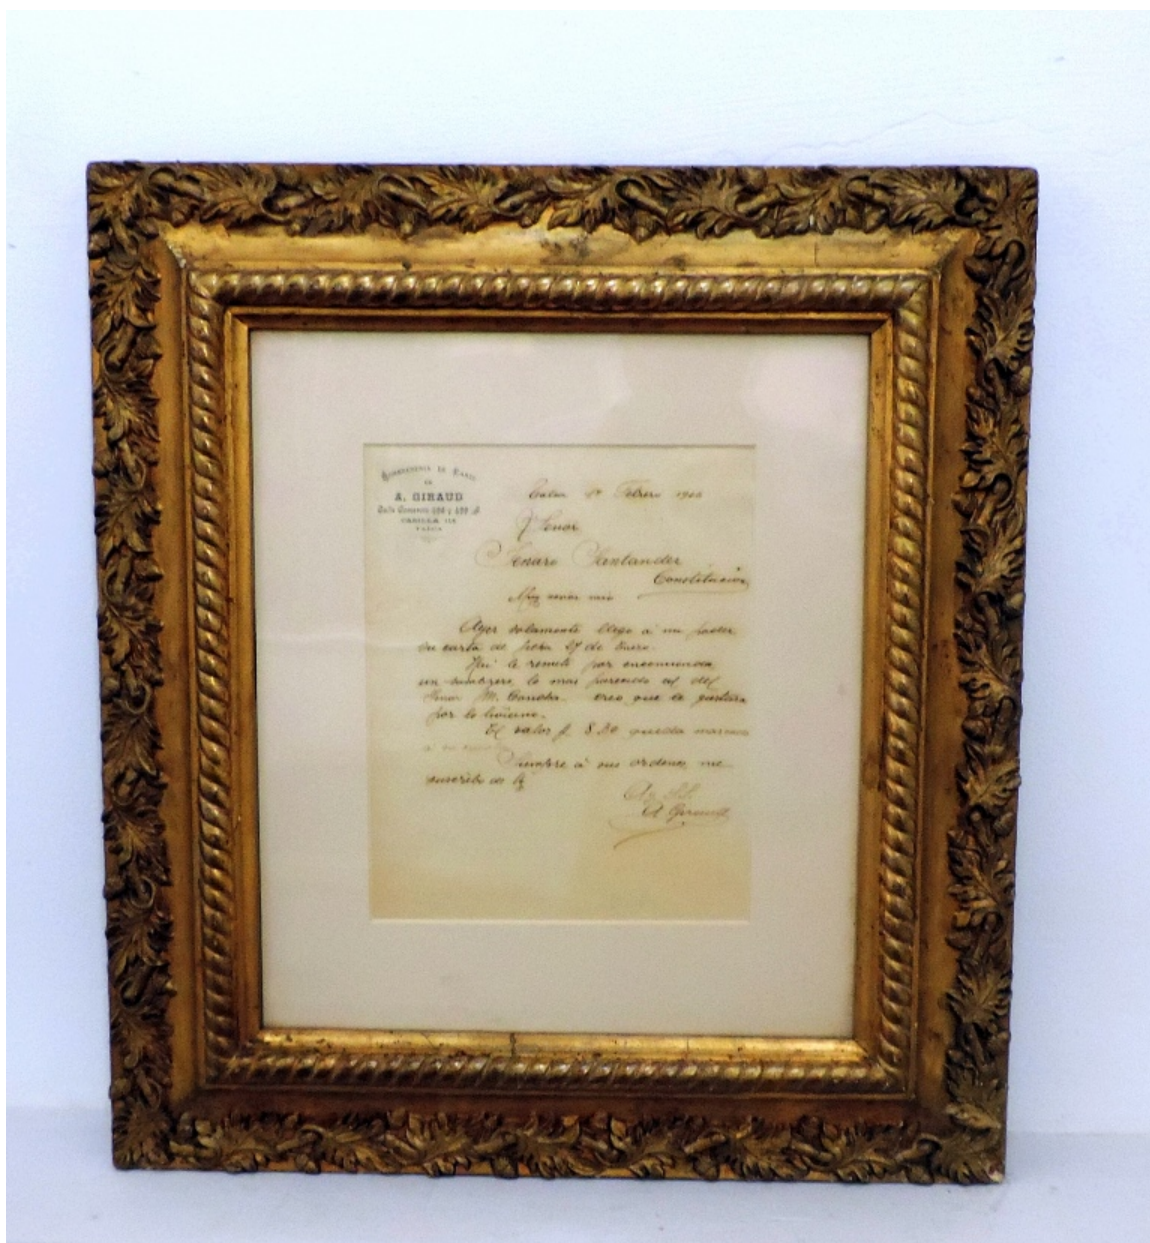 Sombrereria de Paris
de
A. GIRAUD
Calle Comercio
CASILLA
TALCA
Talca 1º Febrero
Señor
Jenaro Santander
Constitucion
Muy señor mio
Ayer solamente llego á mi poder
su carta de fecha 27 de Enero.
Aqui le remito por encomienda
un sombrero lo mas parecido al del
Señor M. Concha. creo que le gustara
por lo
El valor $ 8.50 queda
á su cuenta
Siempre á sus ordenes me
suscribo de
A. Giraud